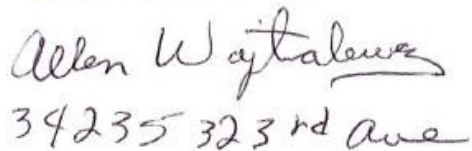 Allen Wojtalewicz
34235 323rd Ave